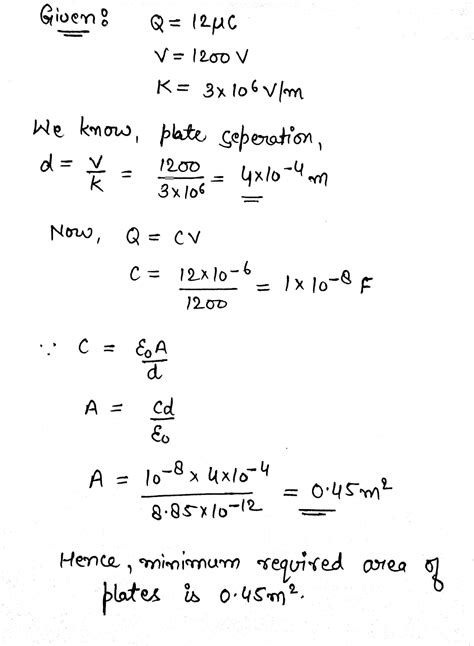 Given: Q = 12μC
V = 1200 V
K = 3×10⁶ V/m
We know, plate seperation,
d = V/K = 1200/3×10⁶ = 4×10⁻⁴ m
Now, Q = CV
C = 12×10⁻⁶/1200 = 1×10⁻⁸ F
∵ C = ε₀A/d
A = Cd/ε₀
A = 10⁻⁸ × 4×10⁻⁴/8.85×10⁻¹² = 0.45m²
Hence, minimum required area of
plates is 0.45m².